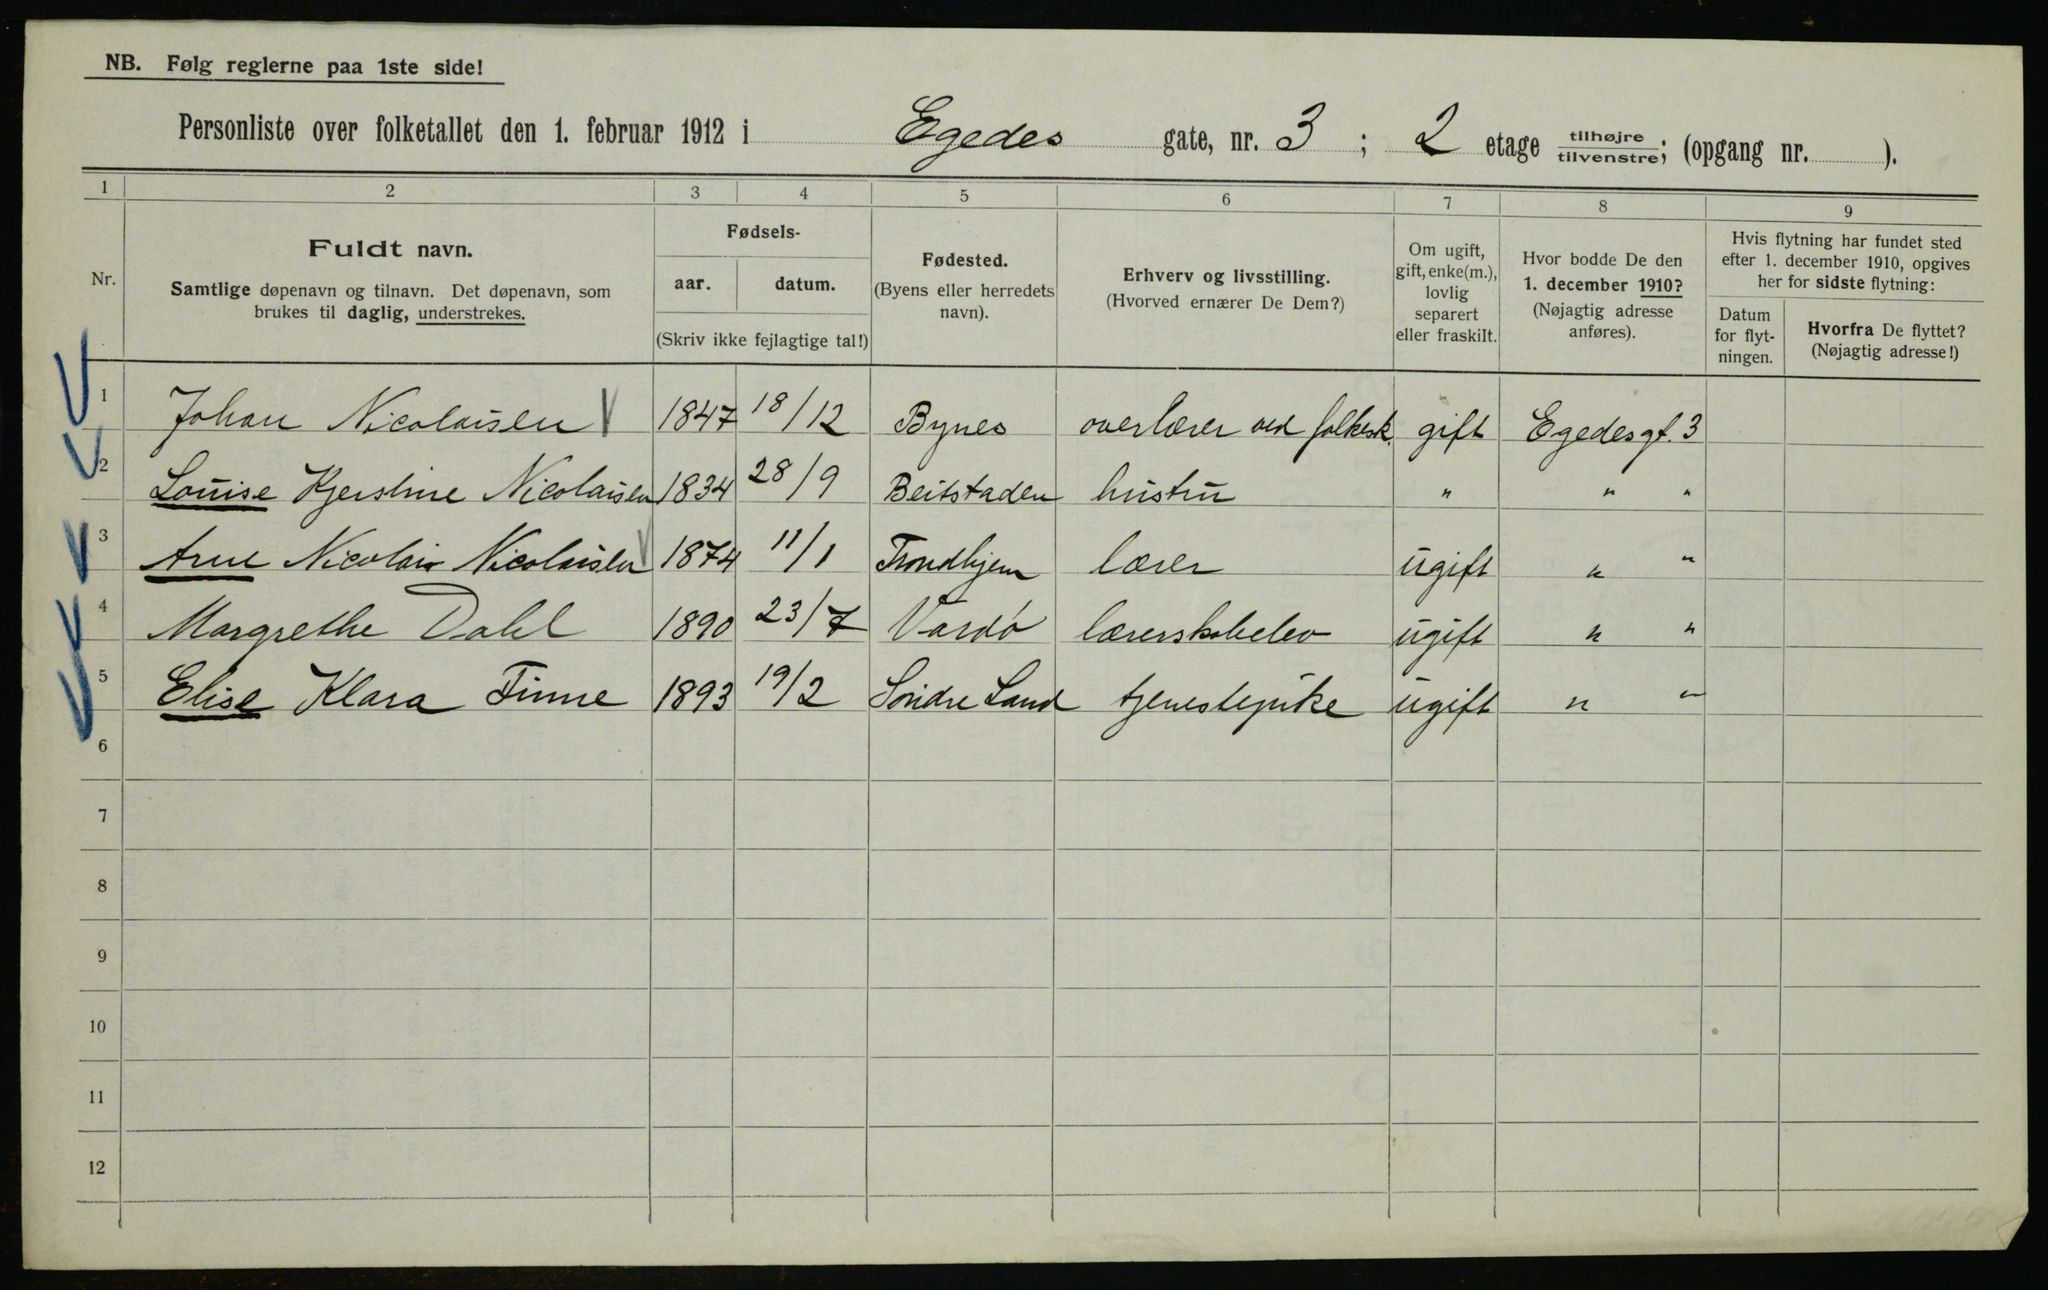 NB. Følg reglerne paa 1ste side!
Personliste over folketallet den 1. februar 1912 i Egedes gate, nr. 3 ; 2 etage tilhøjre/tilvenstre; (opgang nr. ).
1 2 3 4 5 6 7 8 9
Nr.
Fuldt navn.
Samtlige døpenavn og tilnavn. Det døpenavn, som
brukes til daglig, understrekes.
Fødsels-
aar. datum.
(Skriv ikke fejlagtige tal!)
Fødested.
(Byens eller herredets
navn).
Erhverv og livsstilling.
(Hvorved ernærer De Dem?)
Om ugift,
gift, enke(m.),
lovlig
separert
eller fraskilt.
Hvor bodde De den
1. december 1910?
(Nøjagtig adresse
anføres).
Hvis flytning har fundet sted
efter 1. december 1910, opgives
her for sidste flytning:
Datum
for flyt-
ningen.
Hvorfra De flyttet?
(Nøjagtig adresse!)
1 Johan Nicolaisen 1847 18/12 Bynes overlærer ved folkesk. gift Egedesgt. 3
2 Louise Kjerstine Nicolaisen 1834 28/9 Beitstaden hustru " " "
3 Arne Nicolai Nicolaisen 1874 11/1 Trondhjem lærer ugift " "
4 Margrethe Dahl 1890 23/7 Vardø lærerskoleelev ugift " "
5 Elise Klara Finne 1893 19/2 Söndre Land tjenestepike ugift " "
6
7
8
9
10
11
12